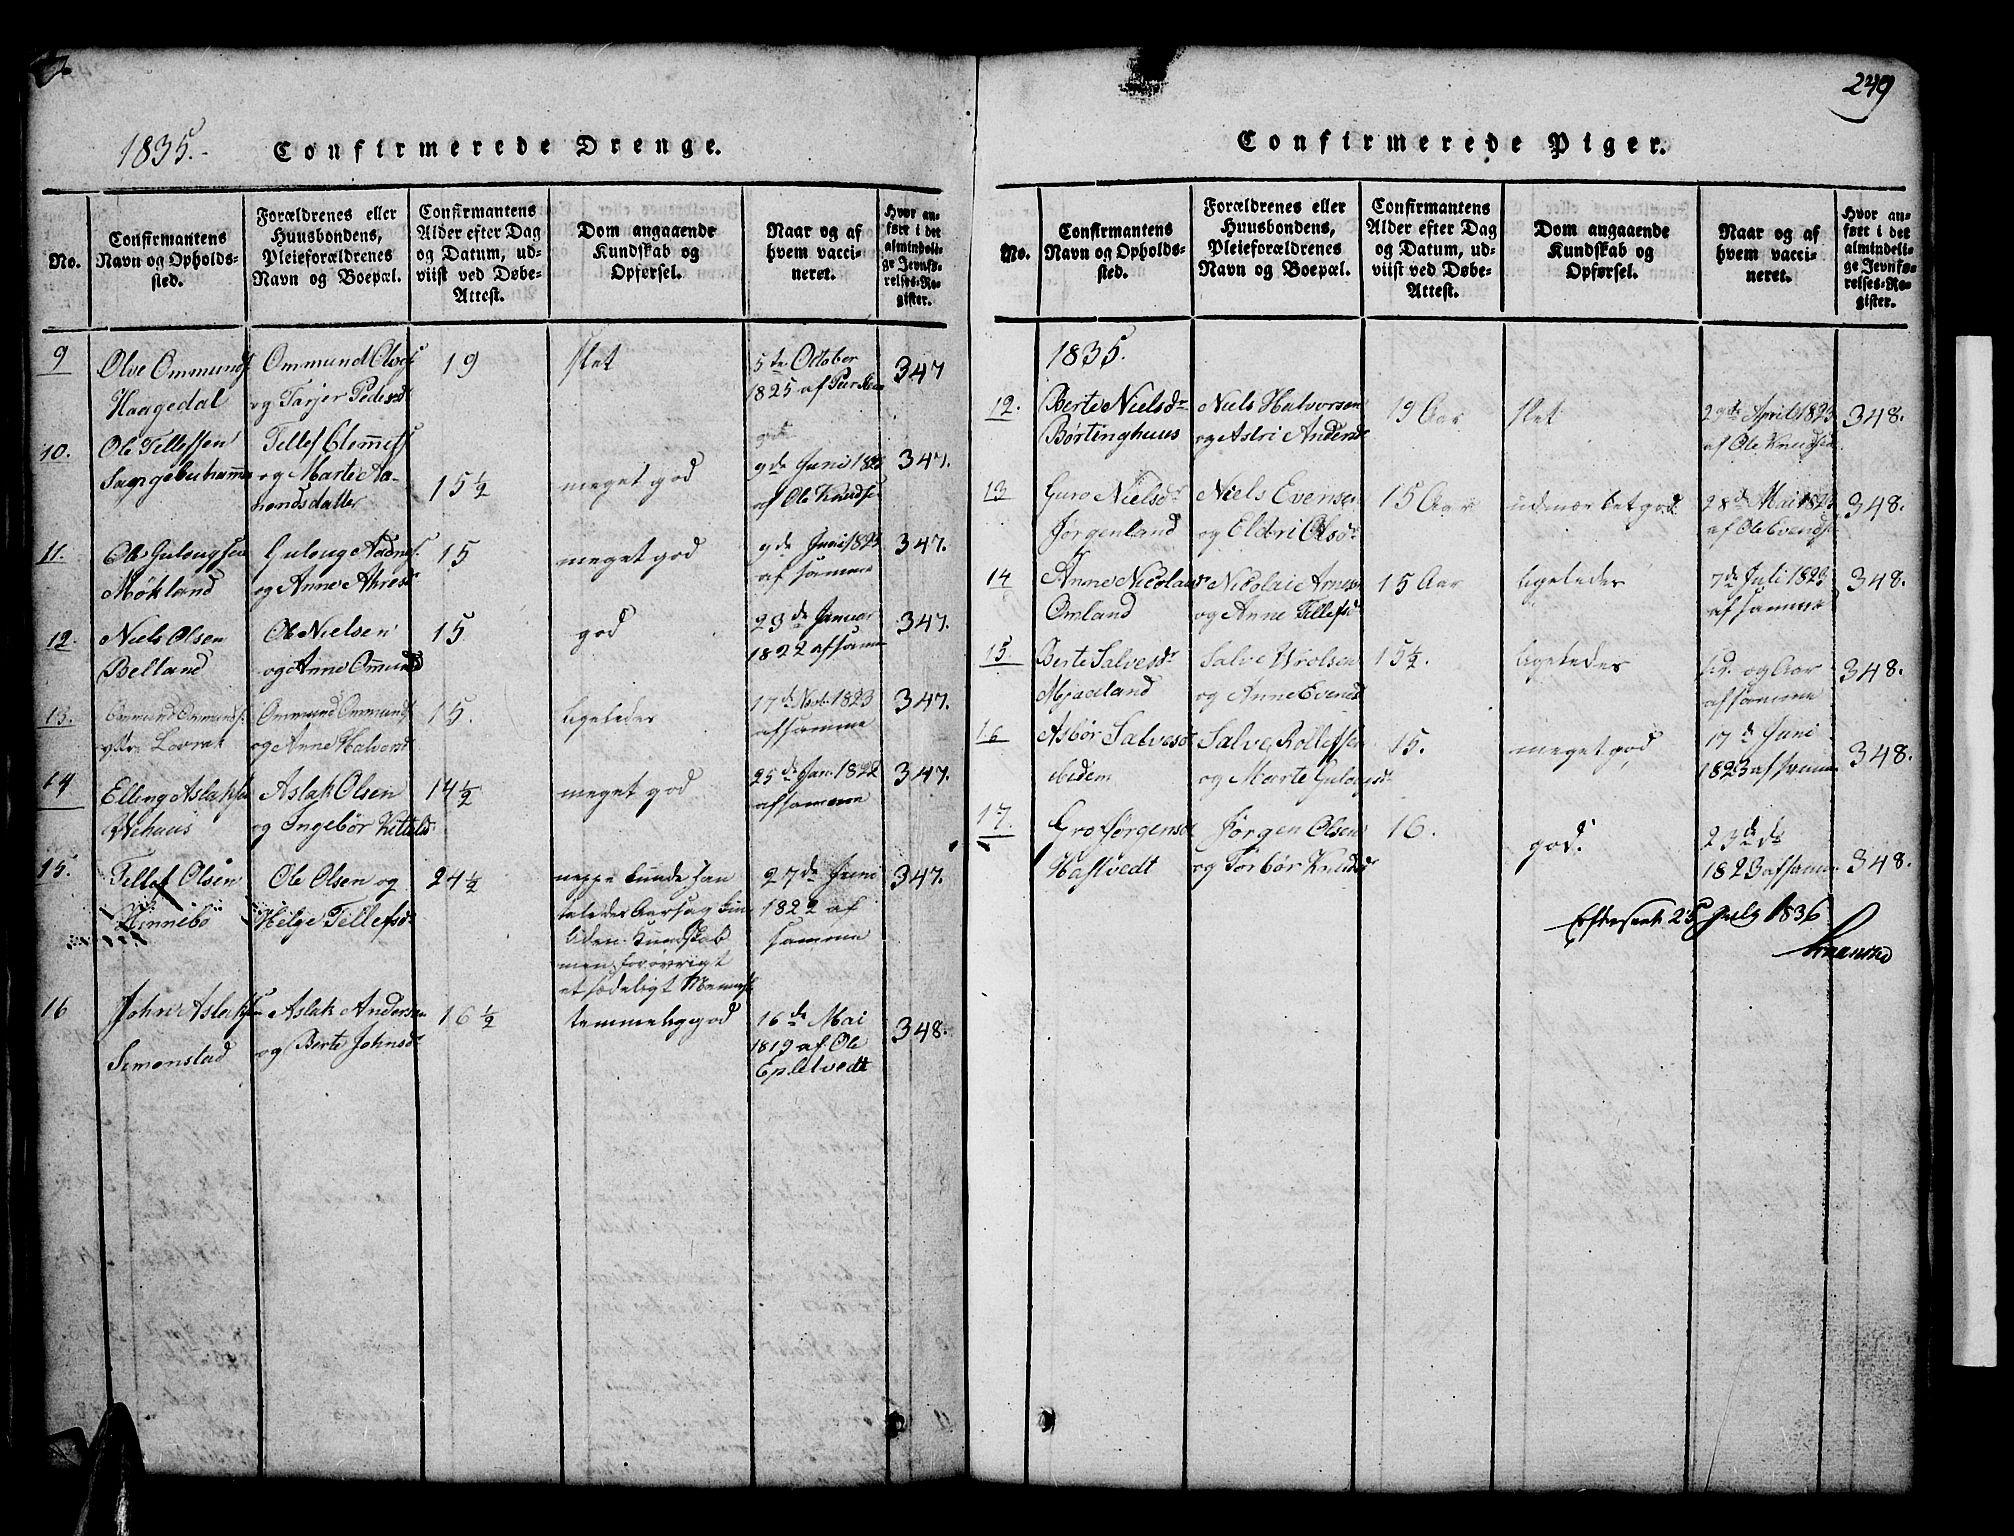 249
1835.
Confirmerede Drenge.
No.
Confirmantens
Navn og Opholds-
sted.
Forældrenes eller
Huusbondens,
Pleieforældrenes
Navn og Boepæl.
Confirmantens
Alder efter Dag
og Datum, ud-
viist ved Døbe-
Attest.
Dom angaaende
Kundskab og
Opførsel.
Naar og af
hvem vacci-
neret.
Hvor an-
ført i det
almindeli-
ge Jevnfø-
relses-Re-
gister.
9
Olve Ommunds
Haagedal
Ommund Olves
og Tarjer Pedersd
19
slet
5te October
1825 af
347
10.
Ole Tellefsen
Tellef Clemmets
og Marte Aa-
nondsdatter
15½
meget god
9de Juni
af Ole Knudsen
347.
11.
Ole Gulougsen
Møkland
Guloug Aadnes
og Anne Akresd
15
meget god
9de Juni 1823
af samme
347.
12.
Niels Olsen
Belland
Ole Nielsen
og Anne Omunds
15
god
23de Januar
1822 af samme
347.
13.
Ommund Ommunds
Lovrak
Ommund Ommunds
og Anne Halvors
15.
ligeledes
17de Nov. 1823
af samme
347.
14
Elling Aslaksen
Vehuus
Aslak Olsen
og Ingebør Kittelsd
14½
meget god
25de Jan. 1822
af samme
347.
15.
Tellef Olsen
Hinnebø
Ole Olsen og
Helge Tellefsd
24½
neppe kunde han
liden Kundskab
men forøvrigt
et sædeligt Mennesk
27de Juni
1822 af
samme
347.
16
John Aslaksen
Simonstad
Aslak Andersen
og Berte Johnsd
16½
temmelig god
16de Mai
1819 af Ole
Epletvedt
348.
Confirmerede Piger.
No.
Confirmantens
Navn og Opholds-
sted.
Forældrenes eller
Huusbondens,
Pleieforældrenes
Navn og Boepæl.
Confirmantens
Alder efter Dag
og Datum, ud-
viist ved Døbe-
Attest.
Dom angaaende
Kundskab og
Opførsel.
Naar og af
hvem vacci-
neret.
Hvor an-
ført i det
almindeli-
ge Jevnfø-
relses-Re-
gister.
1835.
12.
Berte Nielsdr
Børtinghuus
Niels Halvorsen
og Astri Andersd
19 Aar
slet
29de April 1823
af Ole Knudsen
348.
13
Guro Nielsdr
Jørgenland
Niels Evensen
og Eldri Olsdr
15 Aar
udmærket god
28de Mai 1823
af Ole
348.
14
Anne Nicolaisdr
Omland
Nicolai Arnesen
og Anne Tellefsd
15 Aar
ligeledes
7de Juli 1823
af samme
348.
15.
Berte Salvesdr
Mjaaland
Salve Wrolsen
og Anne Evensd
15½.
ligeledes
og Aar
af samme
348.
16
Asbør Salvesd
ibidem
Salve Rollefsen
og Marte Gulougsdr
15.
meget god
17de Juni
1823 af samme
348.
17.
Gro Jørgensd
Haftvedt
Jørgen Olsen
og Torbør Knudsdr
16.
god.
23de ds
1823 af samme
348.
Efterseet 25 July 1836